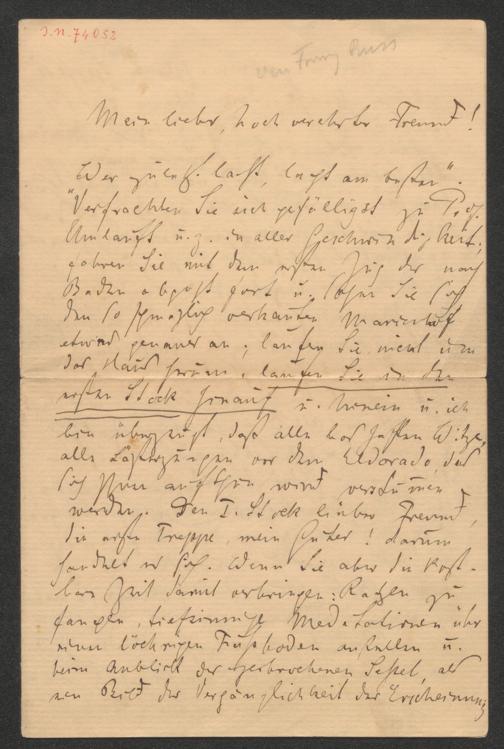 J.N. 74052
von Franz Russ
Mein lieber, hoch verehrter Freund!
„Wer zuletzt lacht, lacht am besten“.
Verfrachten Sie sich gefälligst zu Prof.
Umlauft u. z. in aller Geschwindigkeit,
fahren Sie mit dem ersten Zug der nach
Baden abgeht fort u. sehen Sie sich
den so schmählich verhauten Marienhof
etwas genauer an; laufen Sie nicht um
das Haus herum, laufen Sie in den
ersten Stock hinauf u. hinein u. ich
bin überzeugt, daß alle boshaften Witze,
alle vor dem Eldorado das
sich Ihnen aufthun wird verstummen
werden. Den I. Stock lieber Freund,
die erste Treppe, mein Guter! darum
handelt es sich. Wenn Sie aber die kost-
bare Zeit damit verbringen: Ratzen zu
fangen, tiefsinnige Meditationen über
einen löchrigen Fußboden anstellen u.
beim Anblick der zerbrochenen Sessel, als
nen Bild der Vergänglichkeit der Erscheinung